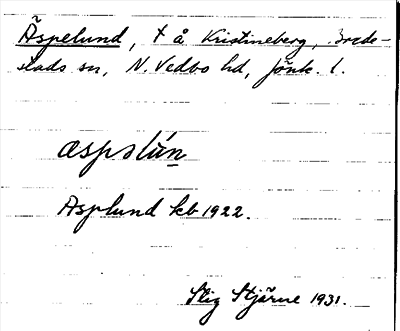 Äspelund, t å Kristineberg, Brede-
stads sn, N. Vedbo hd, Jönk. l.
æspslún
Asplund kb 1922.
Stig Stjärne 1931.